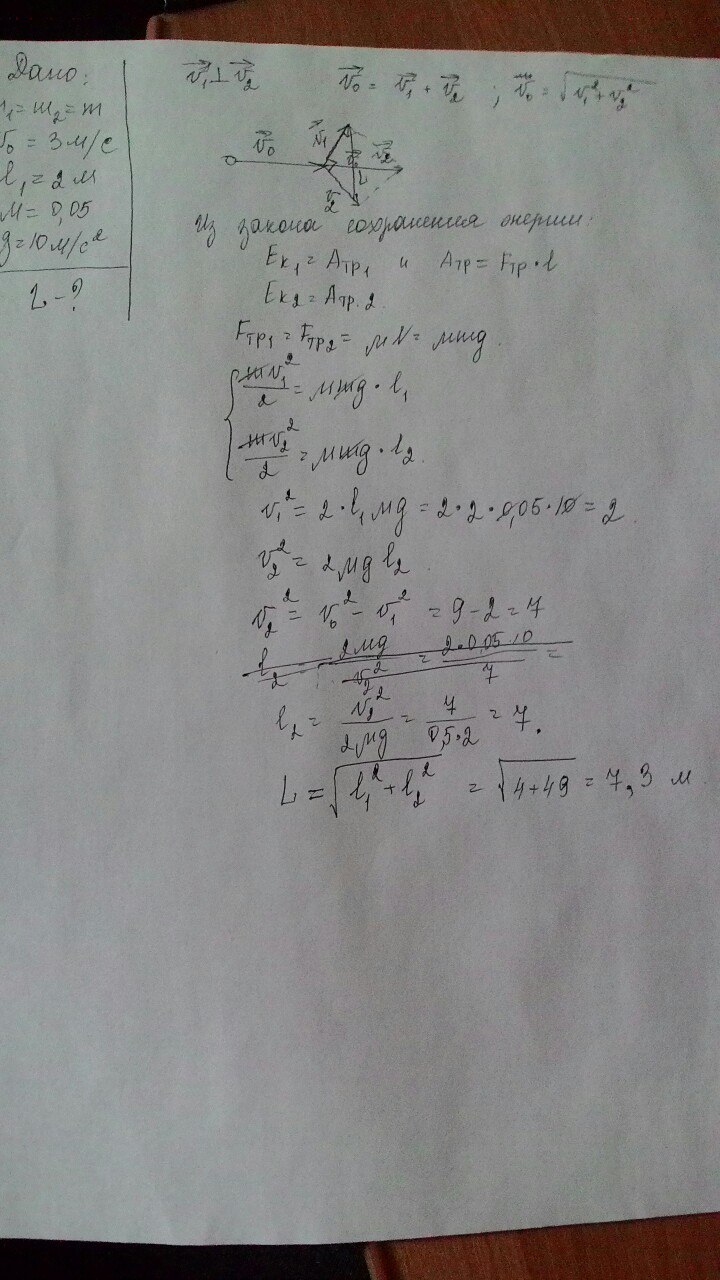 Дано:
m₁ = m₂ = m
v₀ = 3 м/с
l₁ = 2 м
μ = 0,05
g = 10 м/с²
L - ?
v⃗₁ ⊥ v⃗₂ v⃗₀ = v⃗₁ + v⃗₂ ; v⃗₀ = √(v₁² + v₂²)
v⃗₀ v⃗₁ v⃗₂ L
v⃗₂
Из закона сохранения энергии:
Eк₁ = Aтр₁ и Aтр = Fтр · l
Eк₂ = Aтр.2
Fтр₁ = Fтр₂ = μN = μmg
mv₁²/2 = μmg · l₁
mv₂²/2 = μmg · l₂.
v₁² = 2 · l₁ μg = 2 · 2 · 0,05 · 10 = 2
v₂² = 2μg l₂.
v₂² = v₀² - v₁² = 9 - 2 = 7
l₂ 2μg/v₂² = 2·0,05·10/7 =
l₂ = v₂²/2μg = 7/0,5·2 = 7.
L = √(l₁² + l₂²) = √(4+49) = 7,3 м